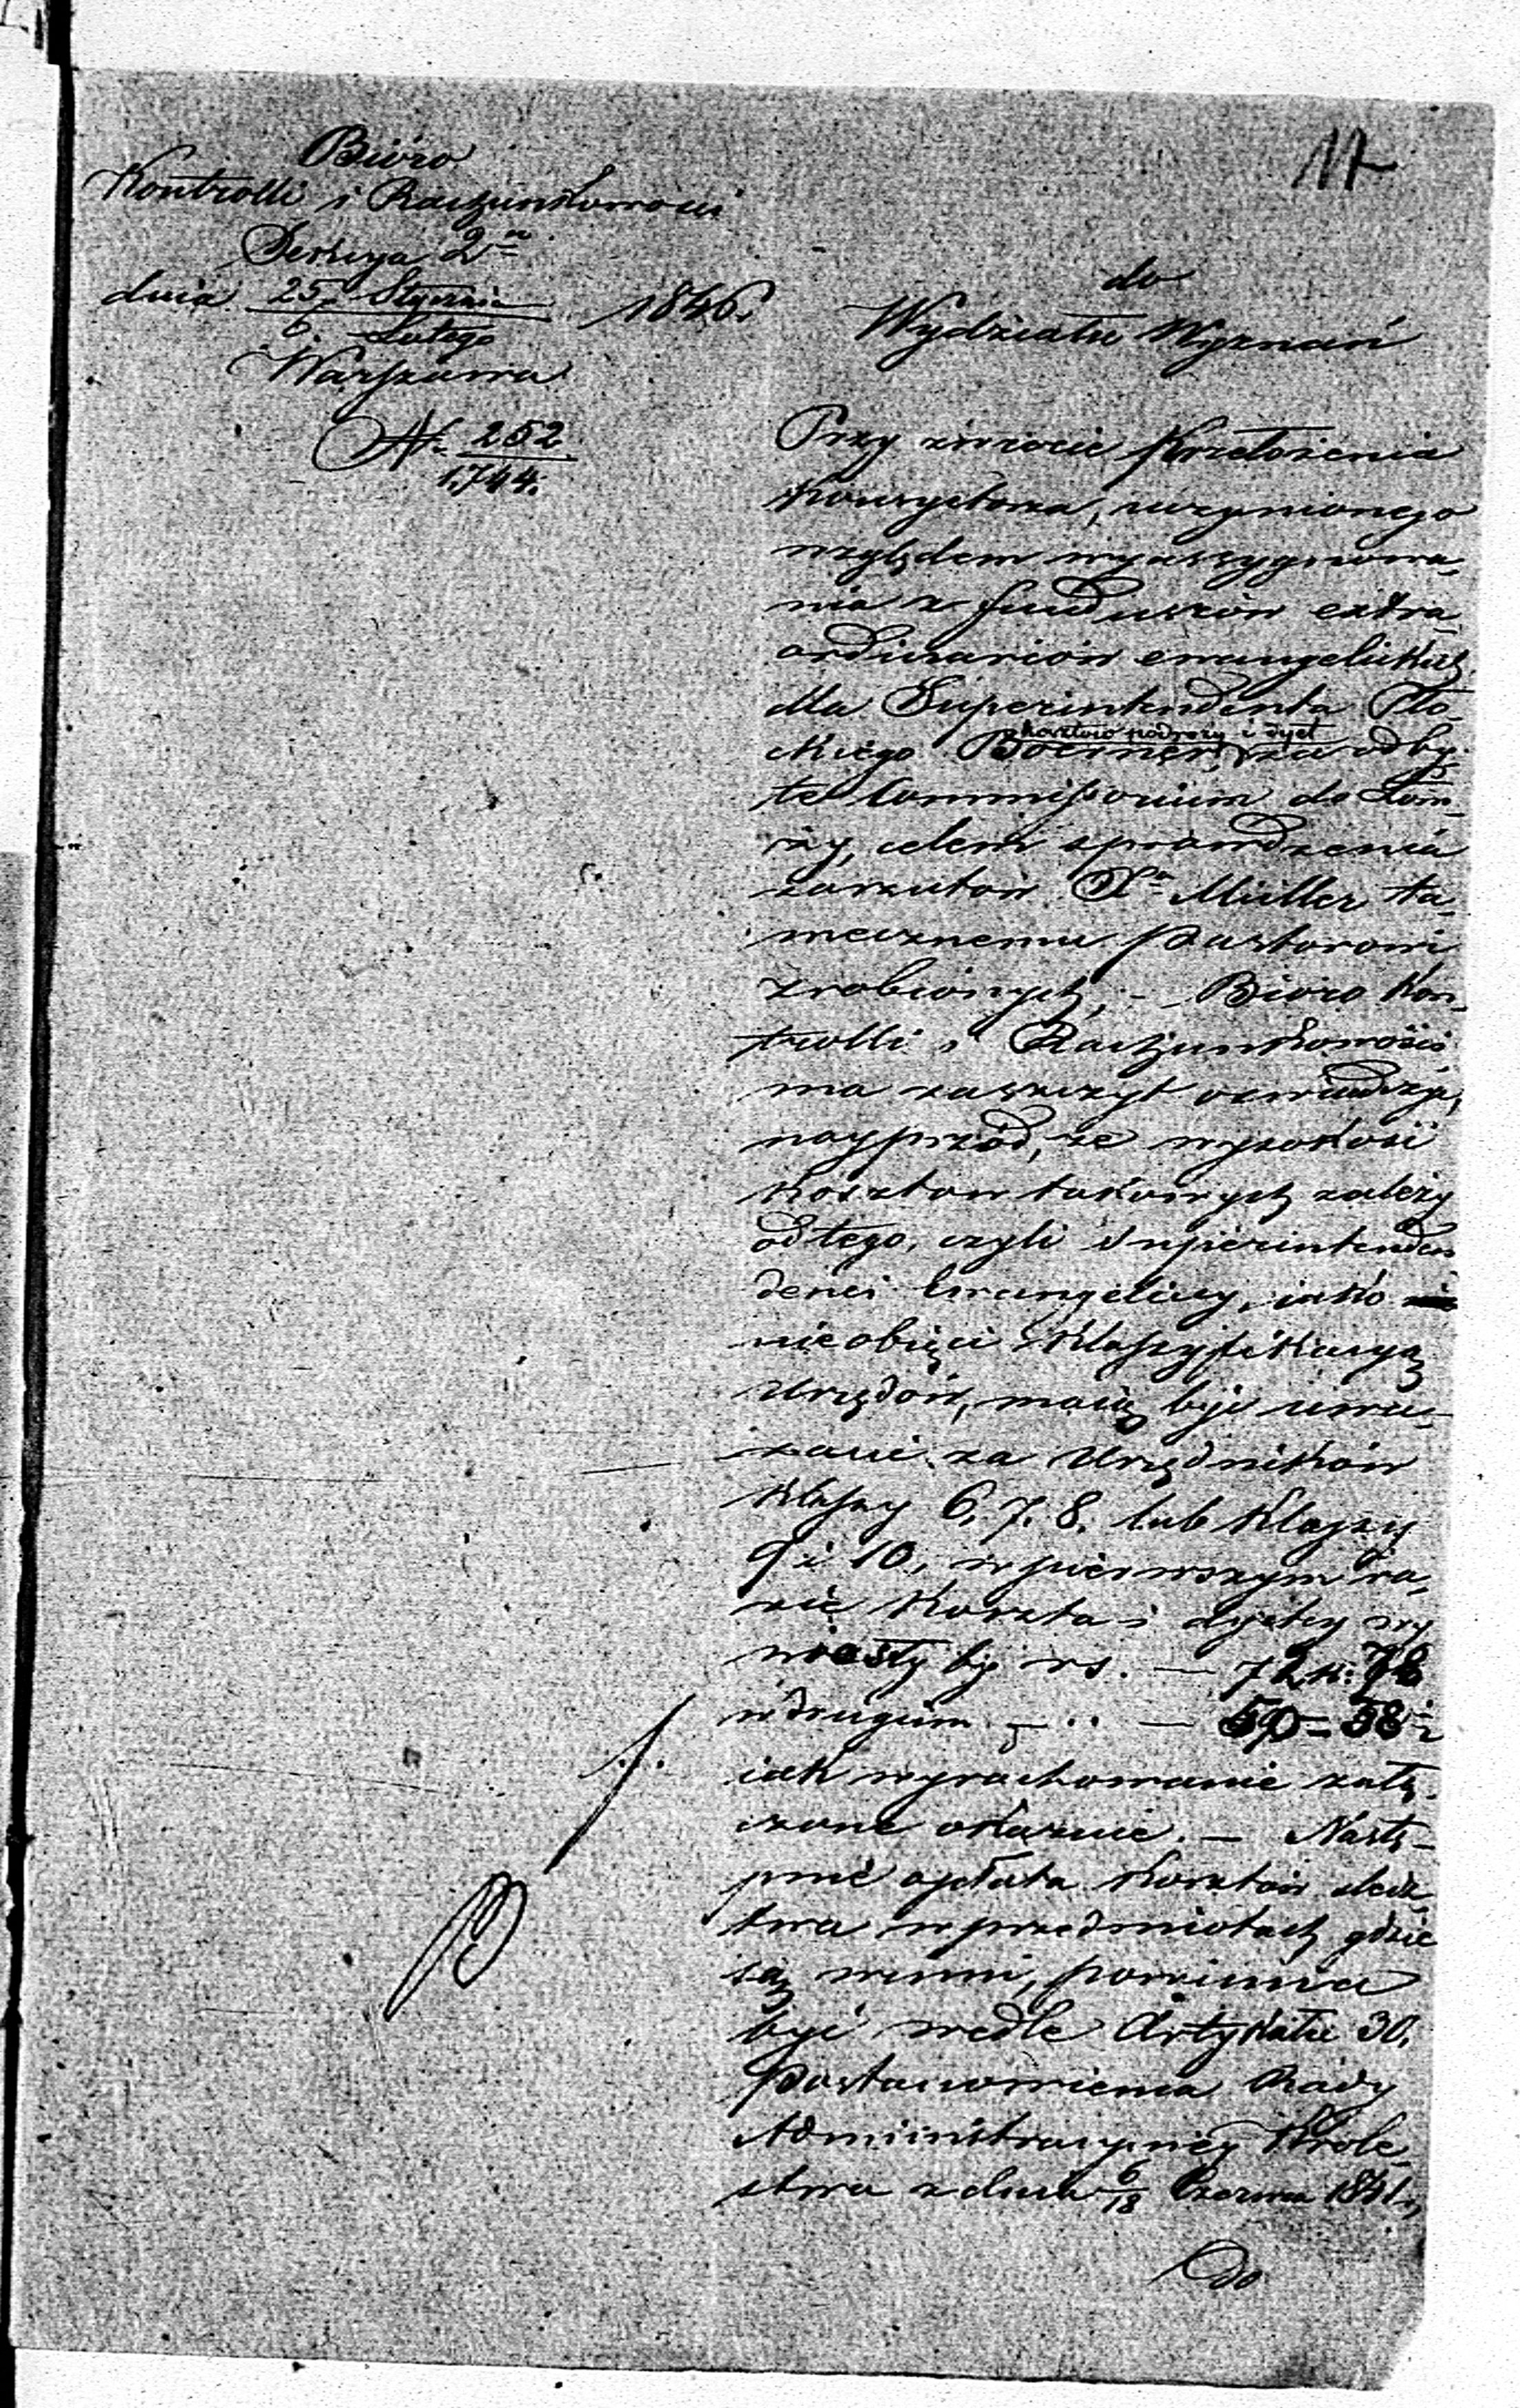 17
Bióro
Kontrolli i Rachunkowości
Sekcya 2ª
dnia 25 Stycznia 1846.
6 Lutego
Warszawa
N. 252
1,744.
do
Wydziału Wyznań
Przy zwrocie przełożenia
Konsystorza, uczynionego
względem wyassygnowa,
nia z funduszów extra,
ordinariów ewangelickich
dla Superintendenta Pło,
ckiego Boerner, kosztów podróży i dyet za odby,
te Commissorium do Łom,
ży, celem sprawdzenia
zarzutów Pª Müller ta,
mecznemu pastorowi
zrobionych, – Bióro Kon,
trolli i Rachunkowości
ma zaszczyt
nayprzód, że wysokość
kosztów takowych zależy
od tego, czyli Superintenden
denci Ewangeliccy, iako
nieobięci klassyfikacyą
Urzędów, maią być uwa,
żani za Urzędników
klassy 6. 7. 8. lub klassy
9 i 10, w pierwszym ra,
zie koszta i dyety wy
niosły by rs. – 72 k. 78
w drugim – „ – 59 – 58½
iak wyrachowanie załą,
czone okazuie. – Nastę,
pnie opłata kosztów śledz,
twa w przedmiotach gdzie
są winni, powinna
być wedle Artykułu 30,
Postanowienia Rady
Administracyiney Króle,
stwa z dnia 6/18 Czerwca 1841.,
do